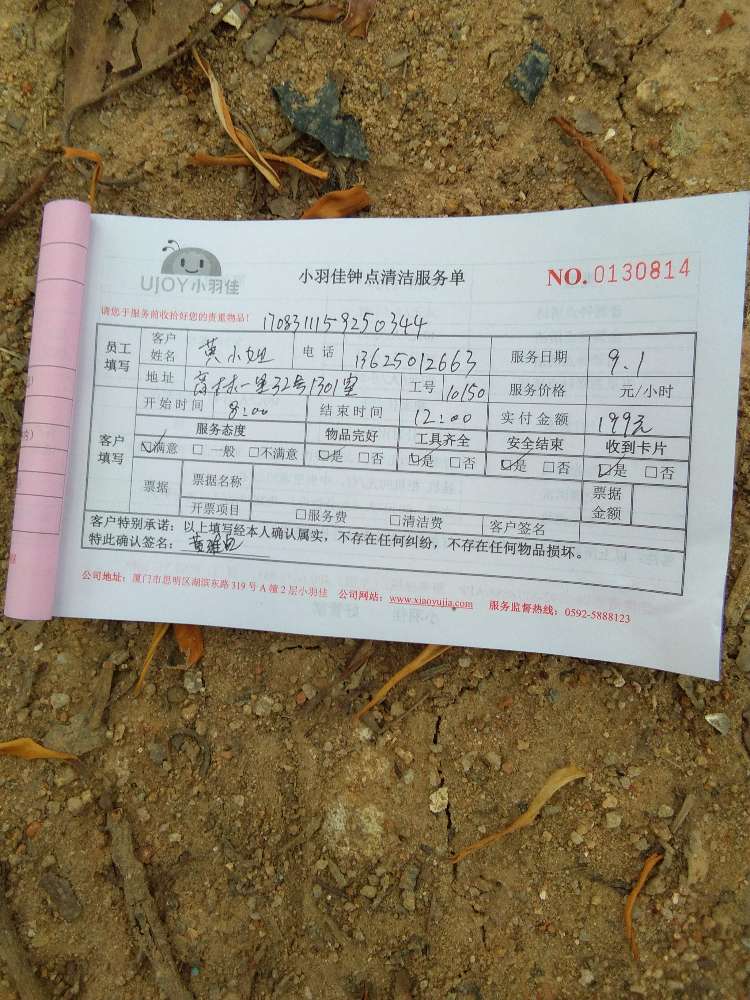 UJOY小羽佳
小羽佳钟点清洁服务单
NO. 0130814
请您于服务前收拾好您的贵重物品！
1708311159250344
员工填写 客户姓名 黄小姐 电话 13625012663 服务日期 9.1
地址 一里32号1301室 工号 10150 服务价格 元/小时
客户填写 开始时间 8:00 结束时间 12:00 实付金额 199元
服务态度 物品完好 工具齐全 安全结束 收到卡片
☑满意 □一般 □不满意 ☑是 □否 ☑是 □否 ☑是 □否 ☑是 □否
票据 票据名称 票据金额
开票项目 □服务费 □清洁费 客户签名
客户特别承诺：以上填写经本人确认属实，不存在任何纠纷，不存在任何物品损坏。
特此确认签名：黄
公司地址：厦门市思明区湖滨东路319号A幢2层小羽佳 公司网站：www.xiaoyujia.com 服务监督热线：0592-5888123